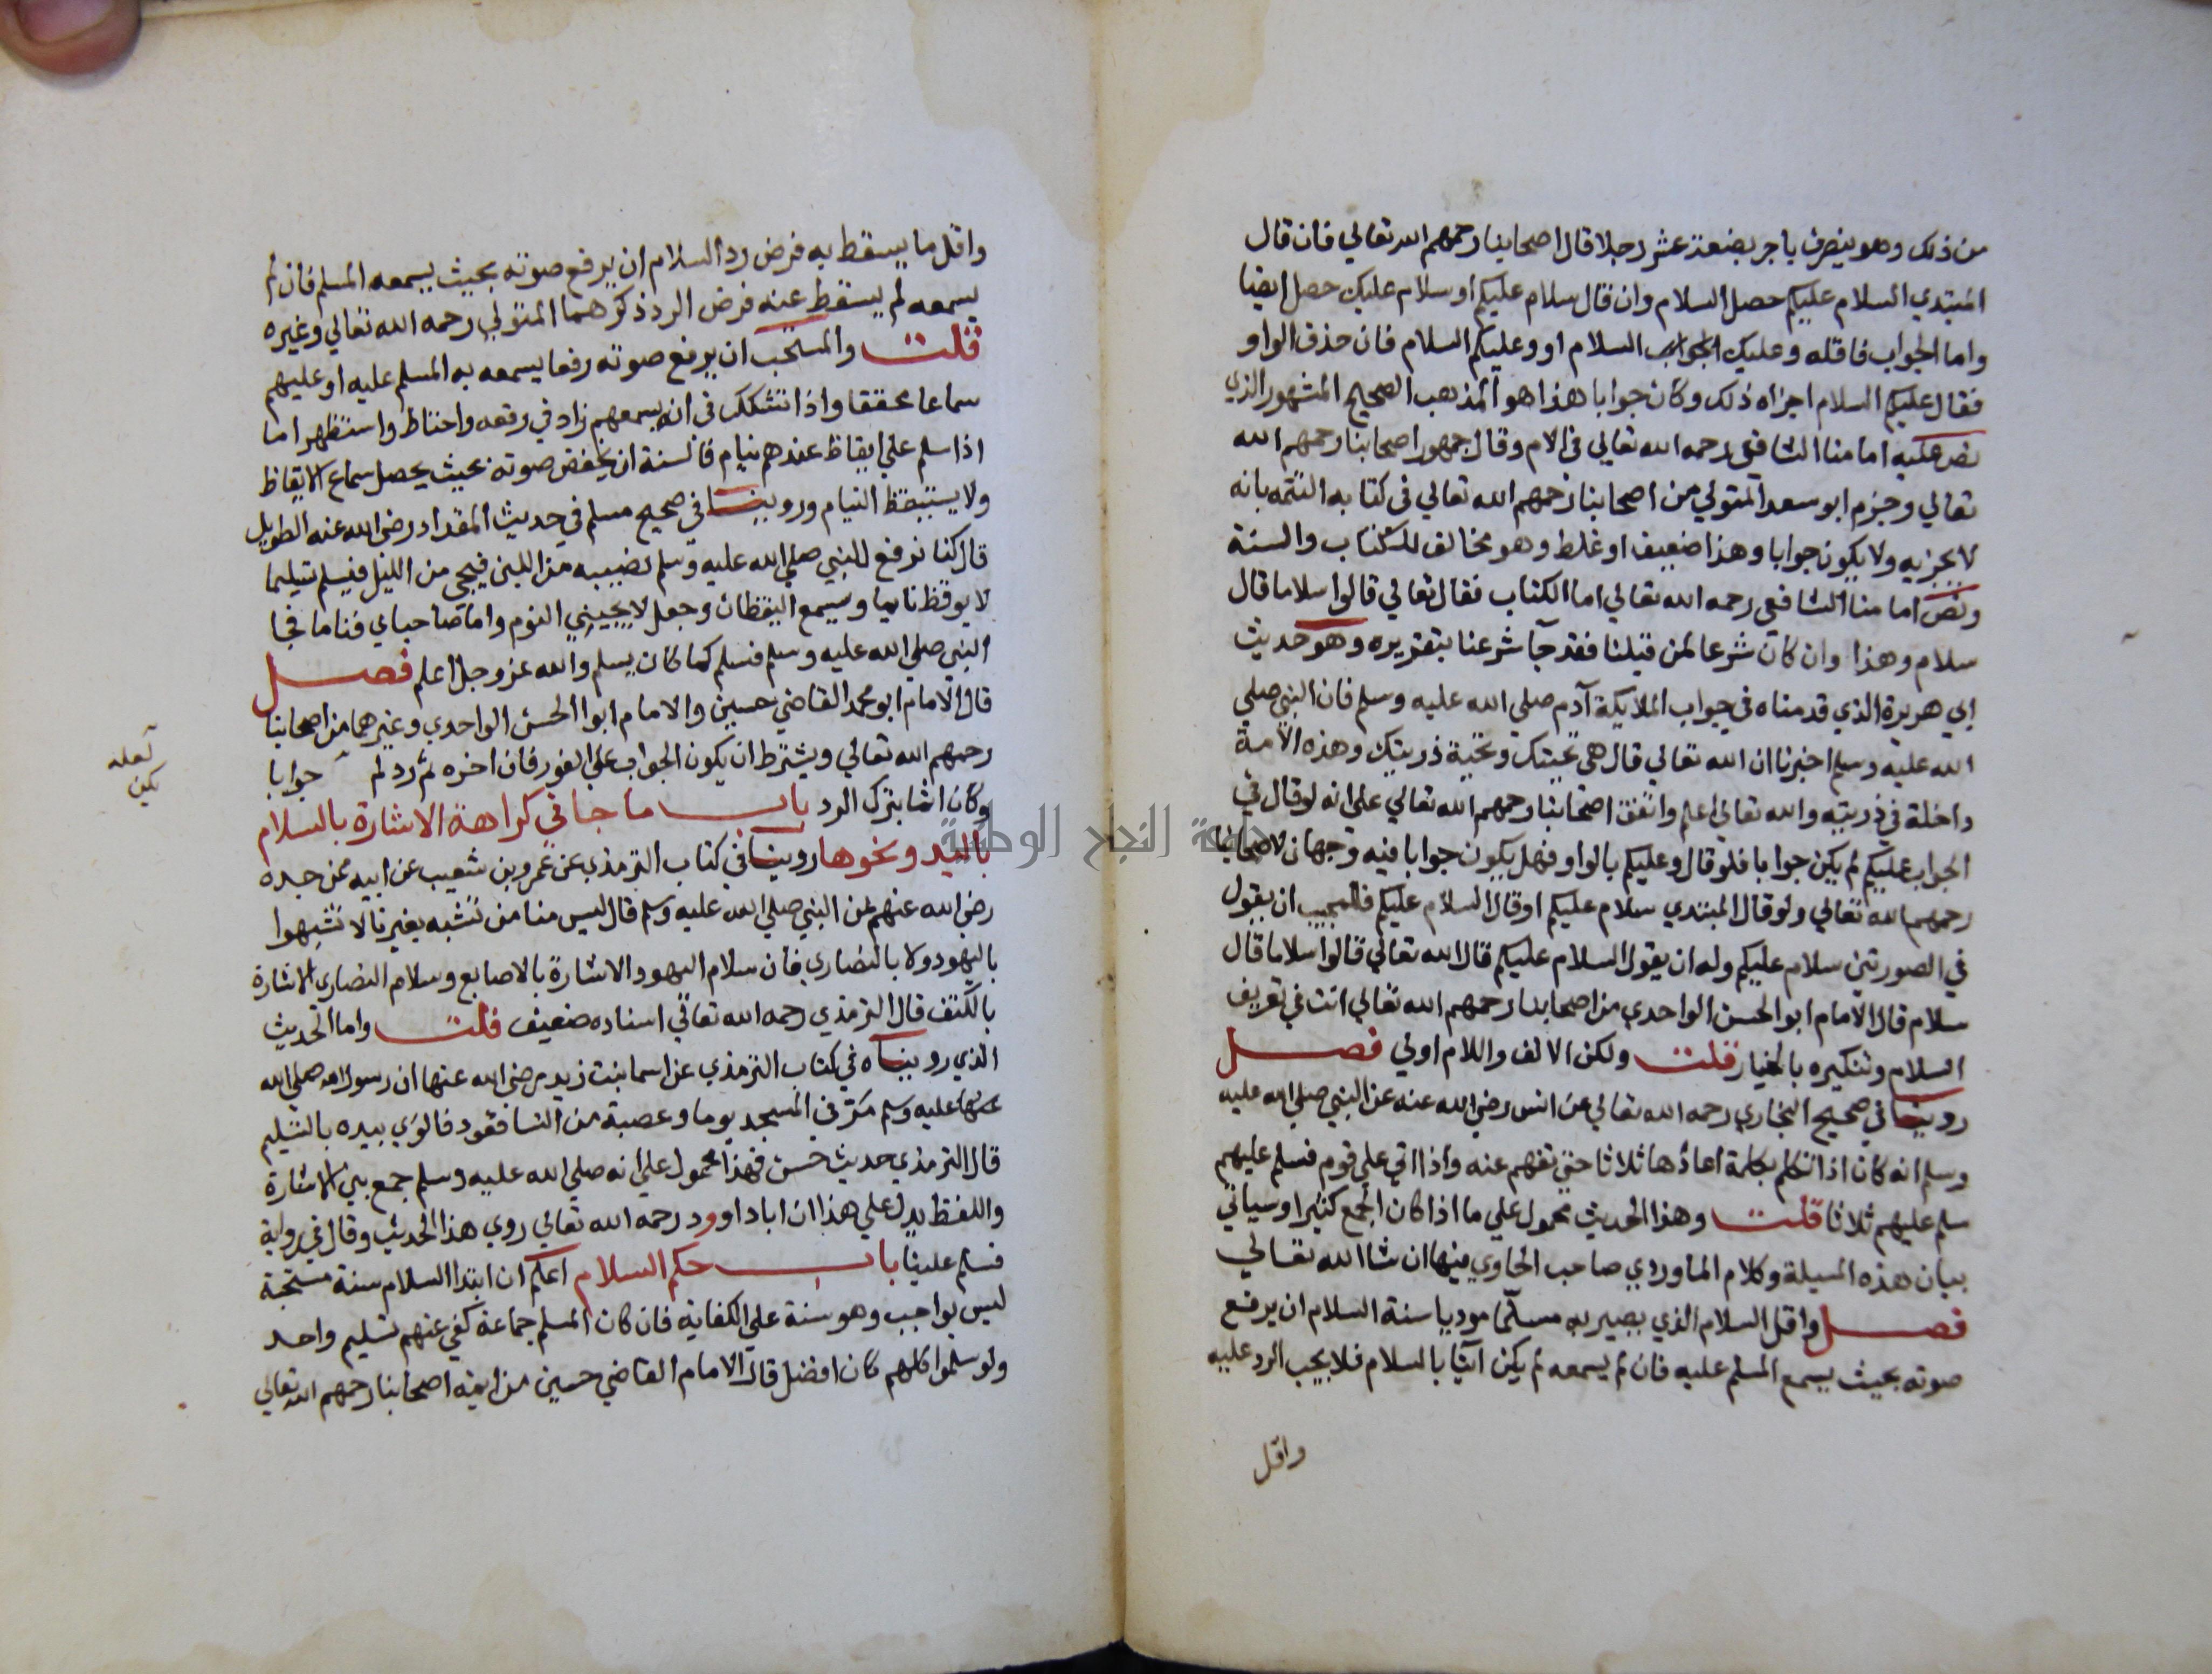 من ذلك وهو ينصرف باجر بضعة عشر رجلا قال اصحابنا رحمهم الله تعالي فان قال
المبتدي السلام عليكم حصل السلام وان قال سلام عليكم او سلام عليك حصل ايضا
واما الجواب فاقله وعليك السلام او وعليكم السلام فان حذف الواو
فقال عليكم السلام اجزاه ذلك وكان جوابا هذا هو المذهب الصحيح المشهور الذي
نص عليه امامنا الشافعي رحمه الله تعالي في الام وقال جمهور اصحابنا رحمهم الله
تعالي وجزم ابو سعد المتولي من اصحابنا رحمهم الله تعالي في كتابه التتمه بانه
لا يجزيه ولا يكون جوابا وهذا ضعيف او غلط وهو مخالف للكتاب والسنة
ونص امامنا الشافعي رحمه الله تعالي اما الكتاب فقال تعالي قالوا سلاما قال
سلام وهذا وان كان شرعا لمن قبلنا فقد جآ شرعنا بتقريره وهو حديث
ابي هريرة الذي قدمناه في جواب الملايكة آدم صلي الله عليه وسلم فان النبي صلي
الله عليه وسلم اخبرنا ان الله تعالي قال هي تحيتك وتحية ذريتك وهذه الامة
داخلة في ذريته والله تعالي اعلم واتفق اصحابنا رحمهم الله تعالي علي انه لو قال في
الجواب عليكم لم يكن جوابا فلو قال وعليكم بالواو فهل يكون جوابا فيه وجهان لاصحابنا
رحمهم الله تعالي ولو قال المبتدي سلام عليكم او قال السلام عليكم فللمجيب ان يقول
في الصورتين سلام عليكم وله ان يقول السلام عليكم قال الله تعالي قالوا سلاما قال
سلام قال الامام ابو الحسن الواحدي من اصحابنا رحمهم الله تعالي انت في تعريف
السلام وتنكيره بالخيار قلت ولكن الالف واللام اولي فصل
روينا في صحيح البخاري رحمه الله تعالي عن انس رضي الله عنه عن النبي صلي الله عليه
وسلم انه كان اذا تكلم بكلمة اعادها ثلاثا حتي تفهم عنه واذا اتي علي قوم فسلم عليهم
سلم عليهم ثلاثا قلت وهذا الحديث محمول علي ما اذا كان الجمع كثيرا وسياتي
بيان هذه المسيلة وكلام الماوردي صاحب الحاوي فيها ان شا الله تعالي
فصل واقل السلام الذي يصير به مسلما موديا سنة السلام ان يرفع
صوته بحيث يسمع المسلم عليه فان لم يسمعه لم يكن آتيا بالسلام فلا يجب الرد عليه
واقل
واقل ما يسقط به فرض رد السلام ان يرفع صوته بحيث يسمعه المسلم فان لم
يسمعه لم يسقط عنه فرض الرد ذكرهما المتولي رحمه الله تعالي وغيره
قلت والمستحب ان يرفع صوته رفعا يسمعه به المسلم عليه او عليهم
سماعا محققا واذا تشكك في انه يسمعهم زاد في رفعه واحتاط واستظهر اما
اذا سلم علي ايقاظ عندهم نيام فالسنة ان يخفض صوته بحيث يحصل سماع الايقاظ
ولا يستيقظ النيام وروينا في صحيح مسلم في حديث المقداد رضي الله عنه الطويل
قال كنا نرفع للنبي صلي الله عليه وسلم نصيبه من اللبن فيجي من الليل فيسلم تسليما
لا يوقظ نايما ويسمع اليقظان وجعل لا يجييني النوم واما صاحباي فناما فجا
النبي صلي الله عليه وسلم فسلم كما كان يسلم والله عز وجل اعلم فصل
قال الامام ابو محمد القاضي حسين والامام ابوا الحسن الواحدي وغيرهما من اصحابنا
رحمهم الله تعالي ويشترط ان يكون الجواب علي الفور فان اخره ثم رد لم جوابا
لعله
يكن
وكان اثما بترك الرد باب ما جا في كراهة الاشارة بالسلام
باليد ونحوها روينا في كتاب الترمذي عن عمرو بن شعيب عن ابيه عن جده
رضي الله عنهم عن النبي صلي الله عليه وسلم قال ليس منا من تشبه بغيرنا لا تشبهوا
باليهود ولا بالنصاري فان سلام اليهود الاشارة بالاصابع وسلام النصاري الاشارة
بالكتف قال الترمذي رحمه الله تعالي اسناده ضعيف قلت واما الحديث
الذي رويناه في كتاب الترمذي عن اسما بنت زيد رضي الله عنها ان رسول الله صلي الله
عليه وسلم مر في المسجد يوما وعصبة من النسا قعود فالوي بيده بالتسليم
قال الترمذي حديث حسن فهذا محمول علي انه صلي الله عليه وسلم جمع بين الاشارة
واللفظ يدل علي هذا ان ابا داوود رحمه الله تعالي روي هذا الحديث وقال في رواية
فسلم علينا باب حكم السلام اعلم ان ابتدا السلام سنة مستحبة
ليس بواجب وهو سنة علي الكفاية فان كان المسلم جماعة كفي عنهم تسليم واحد
ولو سلموا كلهم كان افضل قال الامام القاضي حسين من ايمة اصحابنا رحمهم الله تعالي
جامعة النجاح الوطنية